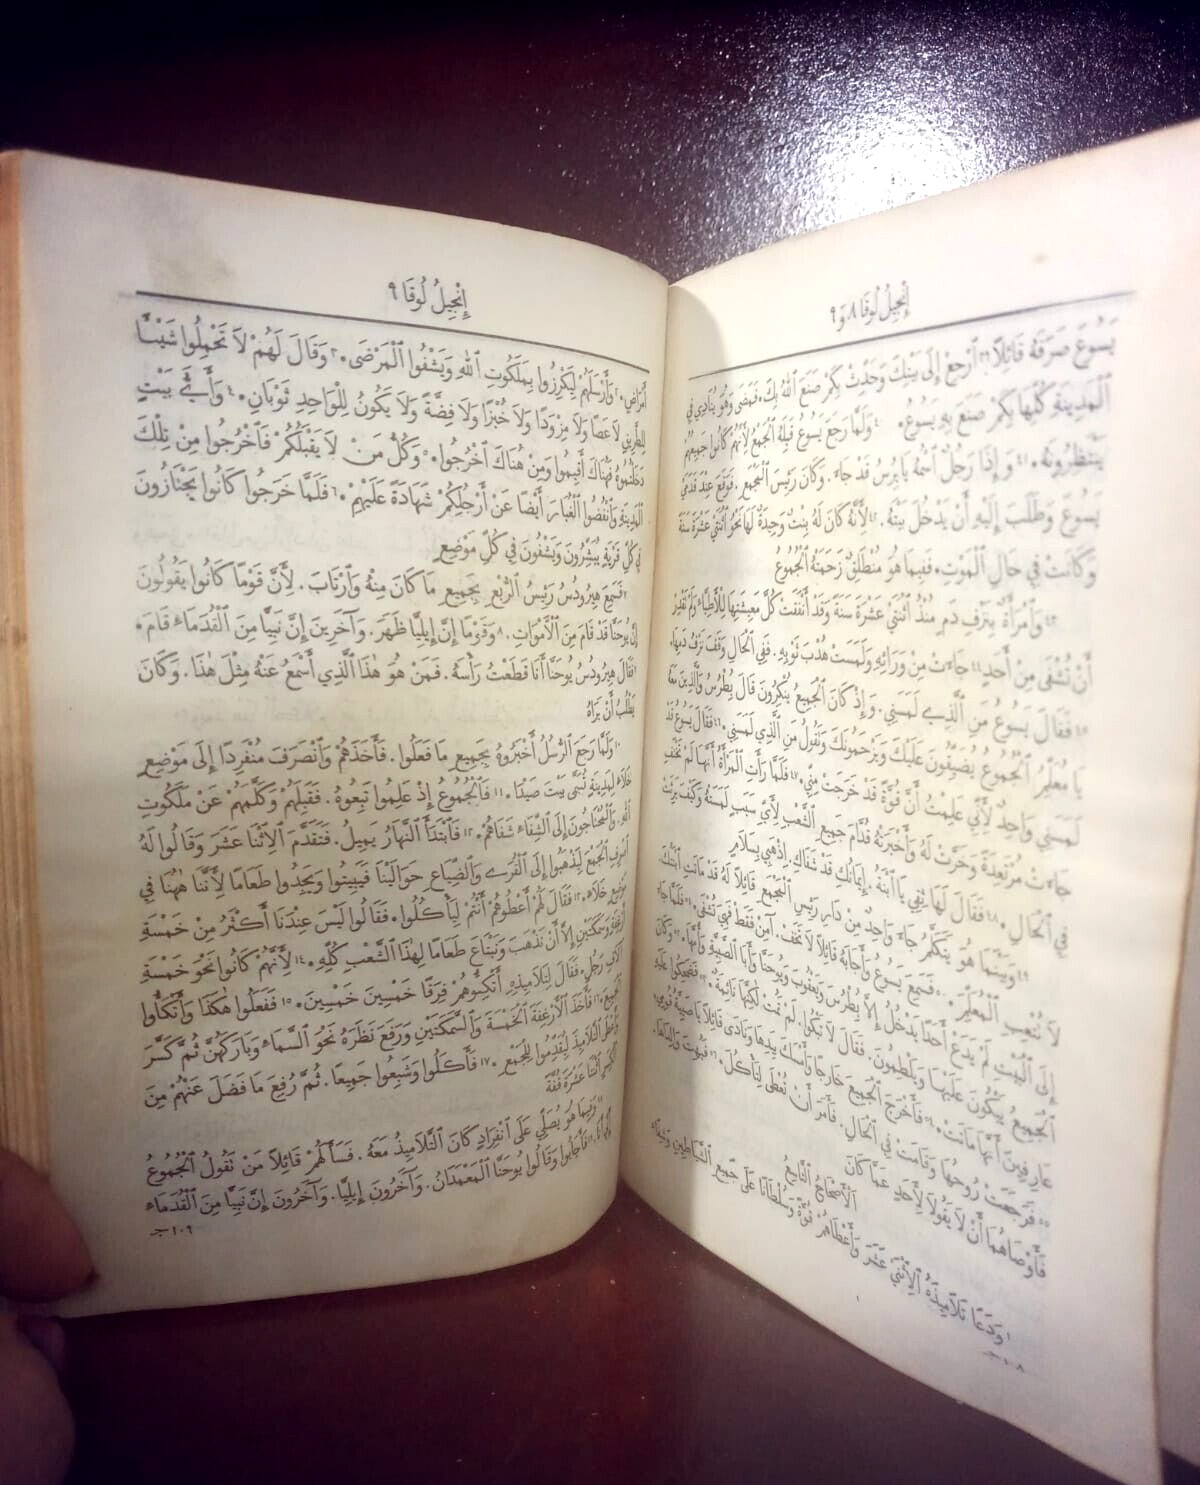 إِنْجِيلُ لُوقَا ٨ وَ ٩
يَسُوعَ صَرَفَهُ قَائِلاً ٣٩ ٱرْجِعْ إِلَى بَيْتِكَ وَحَدِّثْ بِكَمْ صَنَعَ ٱللهُ بِكَ. فَمَضَى وَهُوَ يُنَادِي فِي
ٱلْمَدِينَةِ كُلِّهَا بِكَمْ صَنَعَ بِهِ يَسُوعُ. ٤٠ وَلَمَّا رَجَعَ يَسُوعُ قَبِلَهُ ٱلْجَمْعُ لِأَنَّهُمْ كَانُوا جَمِيعُهُمْ
يَنْتَظِرُونَهُ. ٤١ وَإِذَا رَجُلٌ ٱسْمُهُ يَايِرُسُ قَدْ جَاءَ. وَكَانَ رَئِيسَ ٱلْمَجْمَعِ. فَوَقَعَ عِنْدَ قَدَمَيْ
يَسُوعَ وَطَلَبَ إِلَيْهِ أَنْ يَدْخُلَ بَيْتَهُ. ٤٢ لِأَنَّهُ كَانَ لَهُ بِنْتٌ وَحِيدَةٌ لَهَا نَحْوُ ٱثْنَتَيْ عَشْرَةَ سَنَةً
وَكَانَتْ فِي حَالِ ٱلْمَوْتِ. فَفِيمَا هُوَ مُنْطَلِقٌ زَحَمَتْهُ ٱلْجُمُوعُ
٤٣ وَٱمْرَأَةٌ بِنَزْفِ دَمٍ مُنْذُ ٱثْنَتَيْ عَشْرَةَ سَنَةً وَقَدْ أَنْفَقَتْ كُلَّ مَعِيشَتِهَا لِلْأَطِبَّاءِ وَلَمْ تَقْدِرْ
أَنْ تُشْفَى مِنْ أَحَدٍ ٤٤ جَاءَتْ مِنْ وَرَائِهِ وَلَمَسَتْ هُدْبَ ثَوْبِهِ. فَفِي ٱلْحَالِ وَقَفَ نَزْفُ دَمِهَا.
٤٥ فَقَالَ يَسُوعُ مَنِ ٱلَّذِي لَمَسَنِي. وَإِذْ كَانَ ٱلْجَمِيعُ يُنْكِرُونَ قَالَ بُطْرُسُ وَٱلَّذِينَ مَعَهُ
يَا مُعَلِّمُ ٱلْجُمُوعُ يُضَيِّقُونَ عَلَيْكَ وَيَزْحَمُونَكَ وَتَقُولُ مَنِ ٱلَّذِي لَمَسَنِي. ٤٦ فَقَالَ يَسُوعُ قَدْ
لَمَسَنِي وَاحِدٌ لِأَنِّي عَلِمْتُ أَنَّ قُوَّةً قَدْ خَرَجَتْ مِنِّي. ٤٧ فَلَمَّا رَأَتِ ٱلْمَرْأَةُ أَنَّهَا لَمْ تَخْتَفِ
جَاءَتْ مُرْتَعِدَةً وَخَرَّتْ لَهُ وَأَخْبَرَتْهُ قُدَّامَ جَمِيعِ ٱلشَّعْبِ لِأَيِّ سَبَبٍ لَمَسَتْهُ وَكَيْفَ بَرِئَتْ
فِي ٱلْحَالِ. ٤٨ فَقَالَ لَهَا ثِقِي يَا ٱبْنَةُ. إِيمَانُكِ قَدْ شَفَاكِ. اِذْهَبِي بِسَلاَمٍ
٤٩ وَبَيْنَمَا هُوَ يَتَكَلَّمُ جَاءَ وَاحِدٌ مِنْ دَارِ رَئِيسِ ٱلْمَجْمَعِ قَائِلاً لَهُ قَدْ مَاتَتِ ٱبْنَتُكَ.
لاَ تُتْعِبِ ٱلْمُعَلِّمَ. ٥٠ فَسَمِعَ يَسُوعُ وَأَجَابَهُ قَائِلاً لاَ تَخَفْ. آمِنْ فَقَطْ فَهِيَ تُشْفَى. ٥١ فَلَمَّا جَاءَ
إِلَى ٱلْبَيْتِ لَمْ يَدَعْ أَحَدًا يَدْخُلُ إِلاَّ بُطْرُسَ وَيَعْقُوبَ وَيُوحَنَّا وَأَبَا ٱلصَّبِيَّةِ وَأُمَّهَا. ٥٢ وَكَانَ
ٱلْجَمِيعُ يَبْكُونَ عَلَيْهَا وَيَلْطِمُونَ. فَقَالَ لاَ تَبْكُوا. لَمْ تَمُتْ لٰكِنَّهَا نَائِمَةٌ. ٥٣ فَضَحِكُوا عَلَيْهِ
عَارِفِينَ أَنَّهَا مَاتَتْ. ٥٤ فَأَخْرَجَ ٱلْجَمِيعَ خَارِجًا وَأَمْسَكَ بِيَدِهَا وَنَادَى قَائِلاً يَا صَبِيَّةُ قُومِي.
٥٥ فَرَجَعَتْ رُوحُهَا وَقَامَتْ فِي ٱلْحَالِ. فَأَمَرَ أَنْ تُعْطَى لِتَأْكُلَ. ٥٦ فَبُهِتَ وَالِدَاهَا.
فَأَوْصَاهُمَا أَنْ لاَ يَقُولاَ لِأَحَدٍ عَمَّا كَانَ
ٱلْأَصْحَاحُ ٱلتَّاسِعُ
١ وَدَعَا تَلاَمِيذَهُ ٱلِٱثْنَيْ عَشَرَ وَأَعْطَاهُمْ قُوَّةً وَسُلْطَانًا عَلَى جَمِيعِ ٱلشَّيَاطِينِ وَشِفَاءِ
١٠٨
إِنْجِيلُ لُوقَا ٩
أَمْرَاضٍ. ٢ وَأَرْسَلَهُمْ لِيَكْرِزُوا بِمَلَكُوتِ ٱللهِ وَيَشْفُوا ٱلْمَرْضَى. ٣ وَقَالَ لَهُمْ لاَ تَحْمِلُوا شَيْئًا
لِلطَّرِيقِ لاَ عَصًا وَلاَ مِزْوَدًا وَلاَ خُبْزًا وَلاَ فِضَّةً وَلاَ يَكُونُ لِلْوَاحِدِ ثَوْبَانِ. ٤ وَأَيُّ بَيْتٍ
دَخَلْتُمُوهُ فَهُنَاكَ أَقِيمُوا وَمِنْ هُنَاكَ ٱخْرُجُوا. ٥ وَكُلُّ مَنْ لاَ يَقْبَلُكُمْ فَٱخْرُجُوا مِنْ تِلْكَ
ٱلْمَدِينَةِ وَٱنْفُضُوا ٱلْغُبَارَ أَيْضًا عَنْ أَرْجُلِكُمْ شَهَادَةً عَلَيْهِمْ. ٦ فَلَمَّا خَرَجُوا كَانُوا يَجْتَازُونَ
فِي كُلِّ قَرْيَةٍ يُبَشِّرُونَ وَيَشْفُونَ فِي كُلِّ مَوْضِعٍ
٧ فَسَمِعَ هِيرُودُسُ رَئِيسُ ٱلرُّبْعِ بِجَمِيعِ مَا كَانَ مِنْهُ وَٱرْتَابَ. لِأَنَّ قَوْمًا كَانُوا يَقُولُونَ
إِنَّ يُوحَنَّا قَدْ قَامَ مِنَ ٱلْأَمْوَاتِ. ٨ وَقَوْمًا إِنَّ إِيلِيَّا ظَهَرَ. وَآخَرِينَ إِنَّ نَبِيًّا مِنَ ٱلْقُدَمَاءِ قَامَ.
٩ فَقَالَ هِيرُودُسُ يُوحَنَّا أَنَا قَطَعْتُ رَأْسَهُ. فَمَنْ هُوَ هٰذَا ٱلَّذِي أَسْمَعُ عَنْهُ مِثْلَ هٰذَا. وَكَانَ
يَطْلُبُ أَنْ يَرَاهُ
١٠ وَلَمَّا رَجَعَ ٱلرُّسُلُ أَخْبَرُوهُ بِجَمِيعِ مَا فَعَلُوا. فَأَخَذَهُمْ وَٱنْصَرَفَ مُنْفَرِدًا إِلَى مَوْضِعٍ
خَلاَءٍ لِمَدِينَةٍ تُسَمَّى بَيْتَ صَيْدَا. ١١ فَٱلْجُمُوعُ إِذْ عَلِمُوا تَبِعُوهُ. فَقَبِلَهُمْ وَكَلَّمَهُمْ عَنْ مَلَكُوتِ
ٱللهِ. وَٱلْمُحْتَاجُونَ إِلَى ٱلشِّفَاءِ شَفَاهُمْ. ١٢ فَٱبْتَدَأَ ٱلنَّهَارُ يَمِيلُ. فَتَقَدَّمَ ٱلِٱثْنَا عَشَرَ وَقَالُوا لَهُ
ٱصْرِفِ ٱلْجَمْعَ لِيَذْهَبُوا إِلَى ٱلْقُرَى وَٱلضِّيَاعِ حَوَالَيْنَا فَيَبِيتُوا وَيَجِدُوا طَعَامًا لِأَنَّنَا هٰهُنَا فِي
مَوْضِعٍ خَلاَءٍ. ١٣ فَقَالَ لَهُمْ أَعْطُوهُمْ أَنْتُمْ لِيَأْكُلُوا. فَقَالُوا لَيْسَ عِنْدَنَا أَكْثَرُ مِنْ خَمْسَةِ
أَرْغِفَةٍ وَسَمَكَتَيْنِ إِلاَّ أَنْ نَذْهَبَ وَنَبْتَاعَ طَعَامًا لِهٰذَا ٱلشَّعْبِ كُلِّهِ. ١٤ لِأَنَّهُمْ كَانُوا نَحْوَ خَمْسَةِ
آلاَفِ رَجُلٍ. فَقَالَ لِتَلاَمِيذِهِ أَتْكِئُوهُمْ فِرَقًا خَمْسِينَ خَمْسِينَ. ١٥ فَفَعَلُوا هٰكَذَا وَأَتْكَأُوا
ٱلْجَمِيعَ. ١٦ فَأَخَذَ ٱلْأَرْغِفَةَ ٱلْخَمْسَةَ وَٱلسَّمَكَتَيْنِ وَرَفَعَ نَظَرَهُ نَحْوَ ٱلسَّمَاءِ وَبَارَكَهُنَّ ثُمَّ كَسَّرَ
وَأَعْطَى ٱلتَّلاَمِيذَ لِيُقَدِّمُوا لِلْجَمْعِ. ١٧ فَأَكَلُوا وَشَبِعُوا جَمِيعًا. ثُمَّ رُفِعَ مَا فَضَلَ عَنْهُمْ مِنَ
ٱلْكِسَرِ ٱثْنَتَا عَشْرَةَ قُفَّةً
١٨ وَفِيمَا هُوَ يُصَلِّي عَلَى ٱنْفِرَادٍ كَانَ ٱلتَّلاَمِيذُ مَعَهُ. فَسَأَلَهُمْ قَائِلاً مَنْ تَقُولُ ٱلْجُمُوعُ
أَنِّي أَنَا. ١٩ فَأَجَابُوا وَقَالُوا يُوحَنَّا ٱلْمَعْمَدَانُ. وَآخَرُونَ إِيلِيَّا. وَآخَرُونَ إِنَّ نَبِيًّا مِنَ ٱلْقُدَمَاءِ
١٠٩